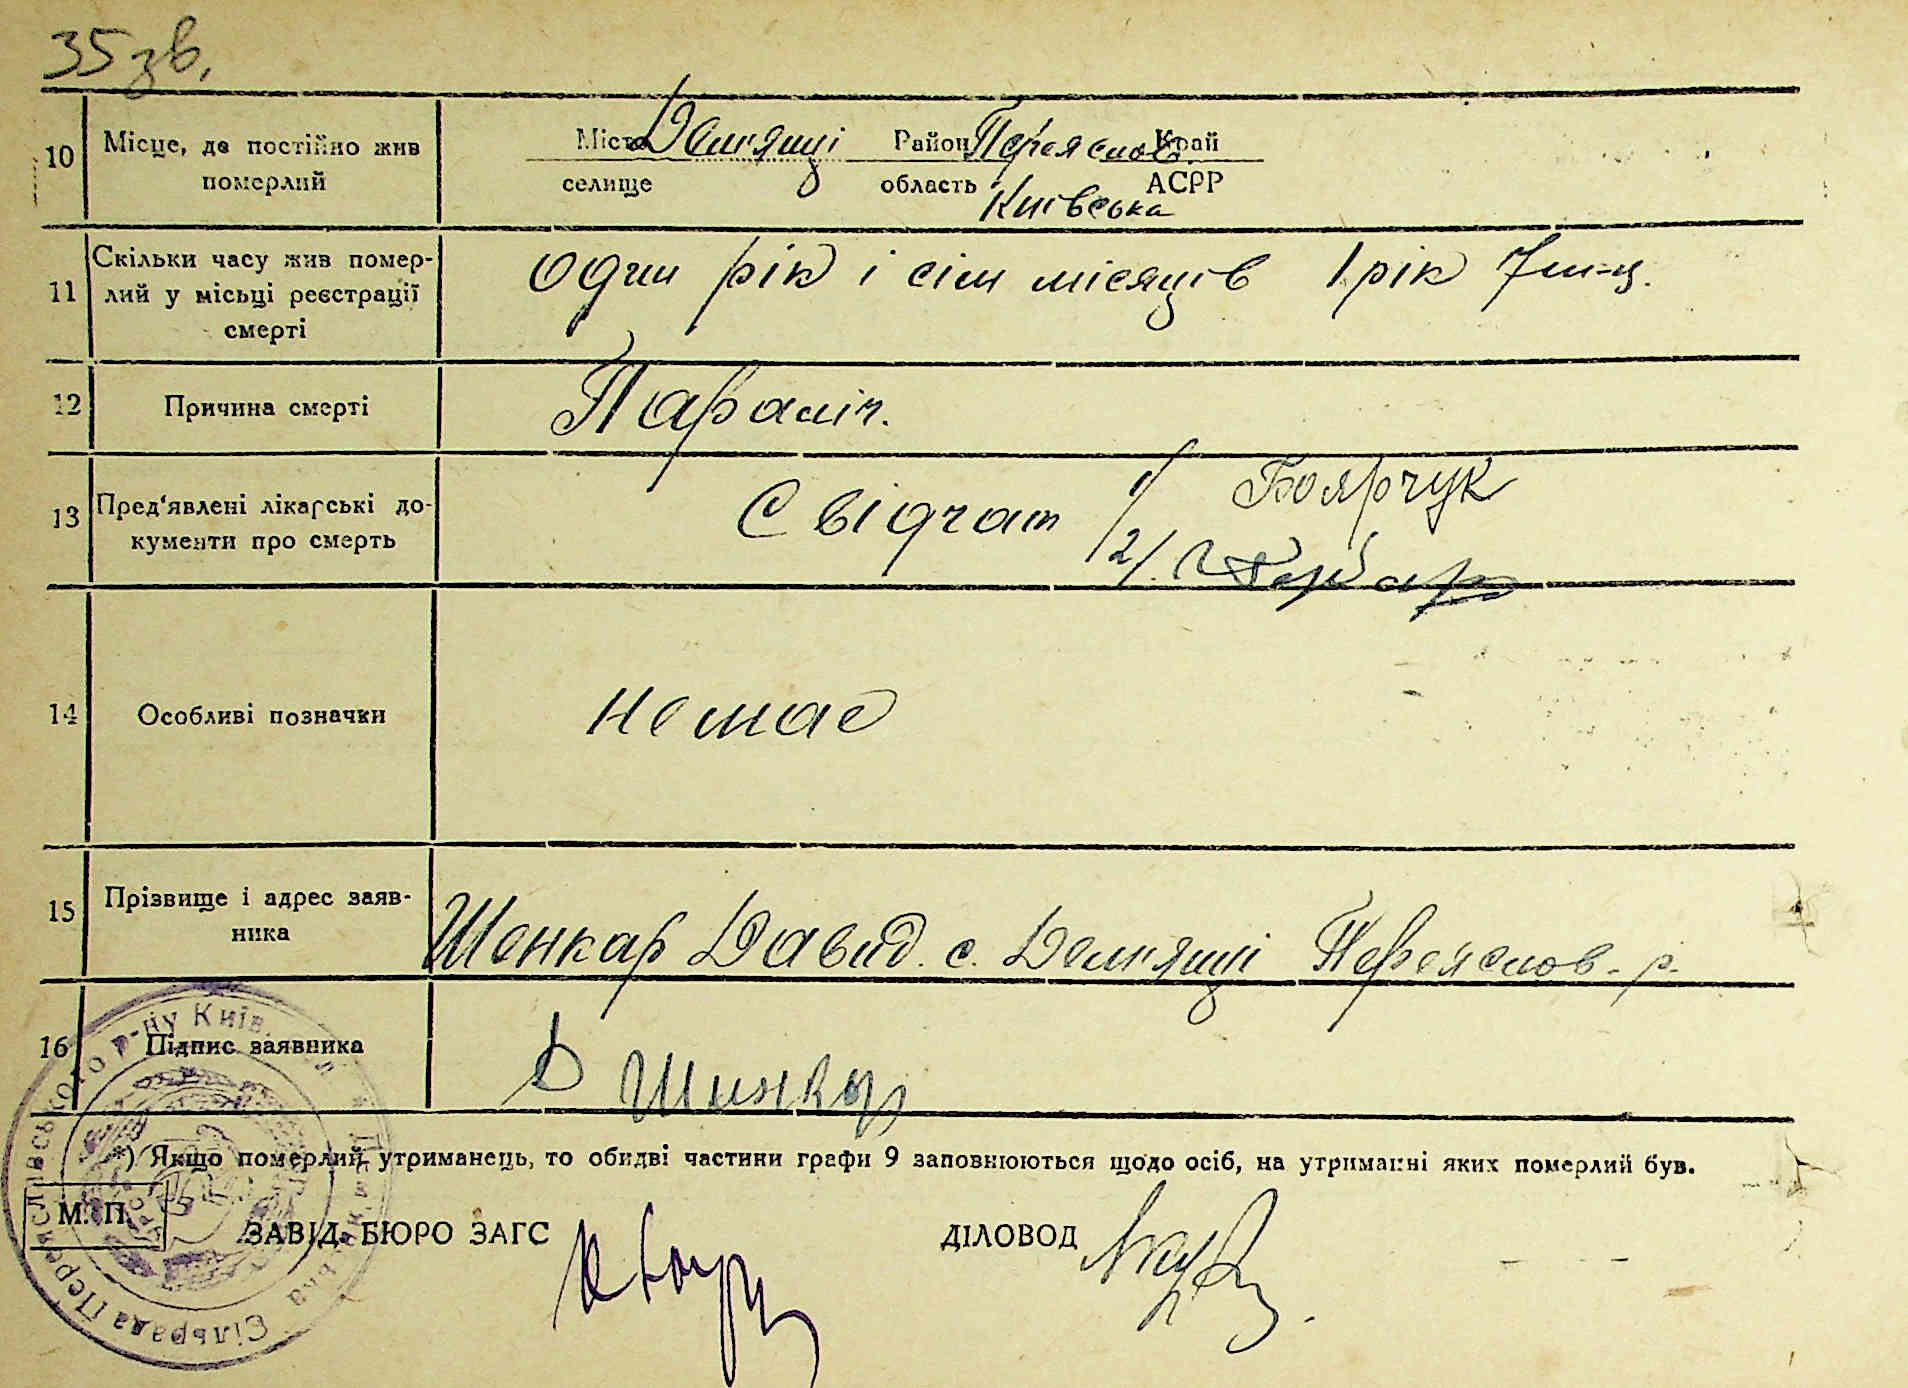 35 зв.
10 Місце, де постійно жив померлий
Місто Дем'янці Район Переяслов. Край
селище область Київська АСРР
11 Скільки часу жив помер-
лий у місьці реєстрації
смерті
один рік і сім місяців 1 рік 7 м-ц.
12 Причина смерті Параліч.
13 Пред'явлені лікарські до-
кументи про смерть
Свідчат 1/ Боярчук
2/.
14 Особливі позначки немає
15 Прізвище і адрес заяв-
ника
Шенкар Давид. с. Дем'янці Переяслов. р.
16 Підпис заявника Д Шинкар
*) Якщо померлий утриманець, то обидві частини графи 9 заповнюються щодо осіб, на утриманні яких померлий був.
М. П. ЗАВІД. БЮРО ЗАГС ДІЛОВОД
Сільрада Переяславського р-ну Київ.